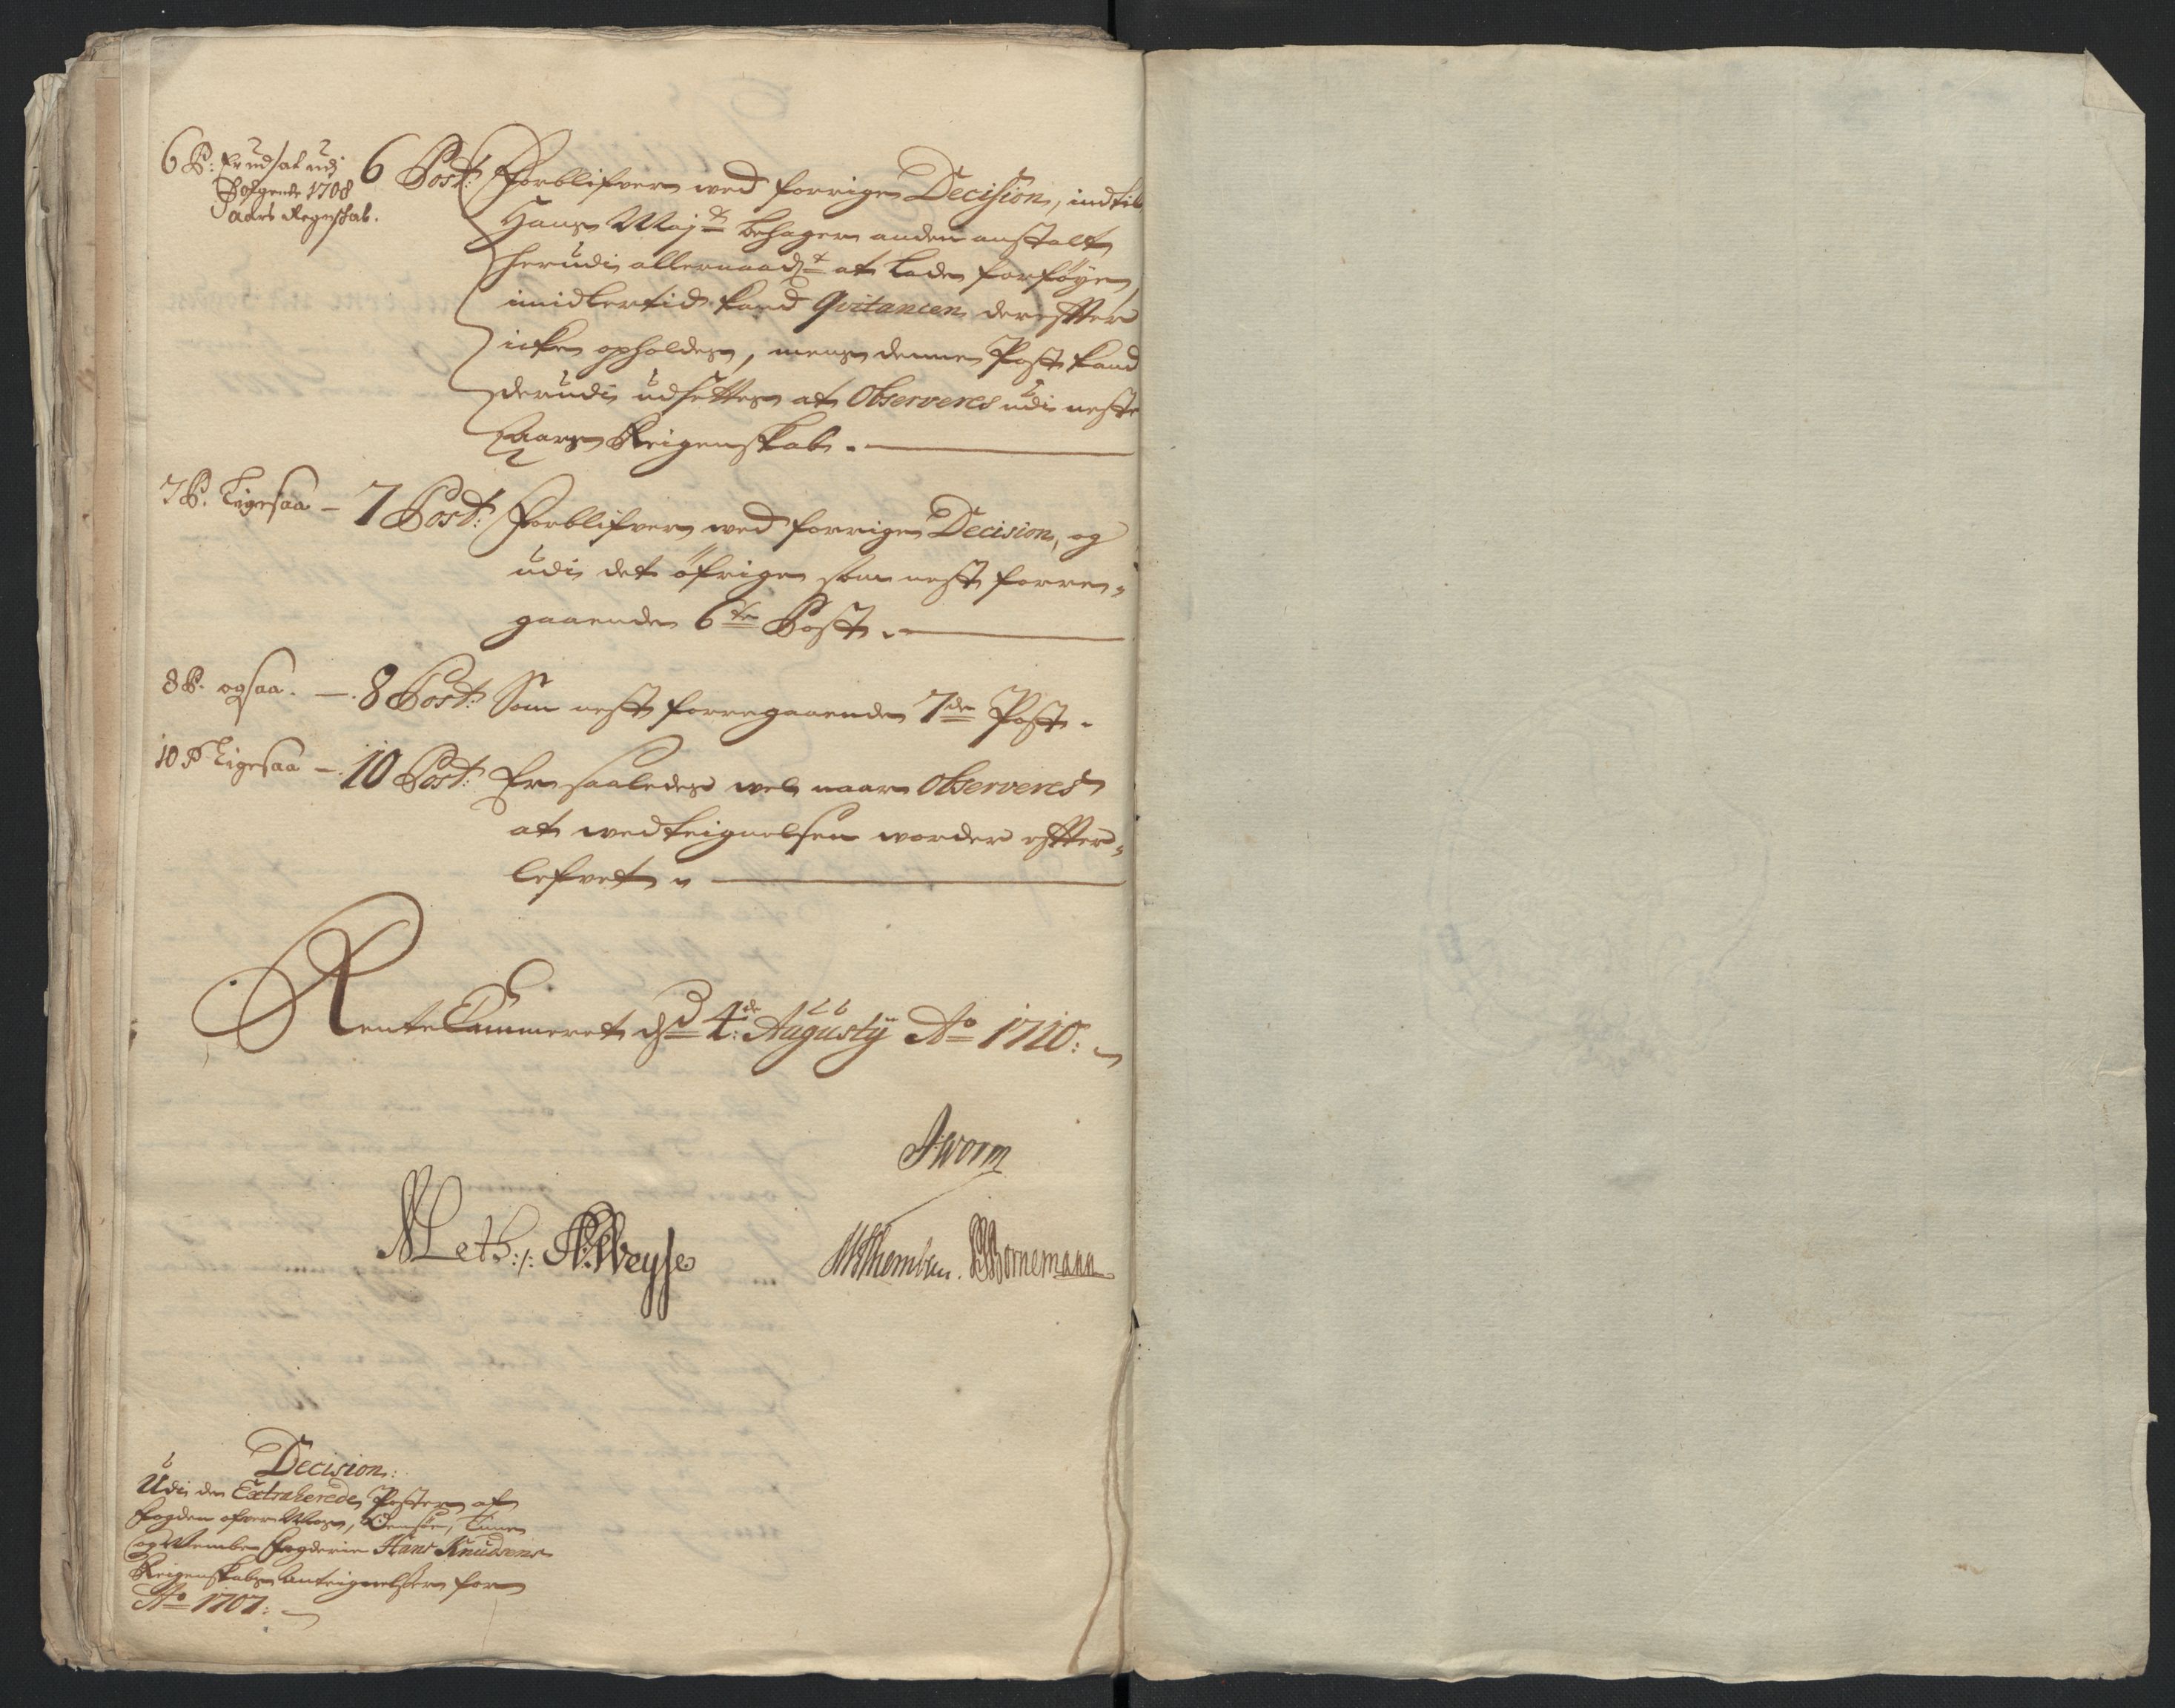 6 P: Er udsat udj
Følgende 1708
aars Regenskab.
6 Post: Forblifver wed forrige Decision, indtil
Hans Maj:ts behager anden anstalt
herudi allernaad:st at lade forføye,
imidlertid kand Qvitancen derefter
icke opholdes, mens denne Post kand
derudi udsettes at Observeres udi neste
Aars Reigenskab.
7 P. Ligesaa —
7 Post: Forblifver wed forrige Decision, og
udi det öfrige som nest forre-
gaaende 6te Post.
8 P. ogsaa. —
8 Post: Som nest forregaaende 7de Post.
10 P Ligesaa —
10 Post: Er saaledes vel naar Observeres
at wedteignelsen worder efter-
lefvet.
RenteCammeret d: 4de Augusty Ao 1710:
Worm
Meth:/: Weyse
Themsen. Bornemann
Decision:
Udi de Extraherede Poster af
Fogden ofver Moss, Onsøe, Tune
og Wembe Fogderie Hans Knudsens
Reigenskabs Anteignelser for
Ao 1707: